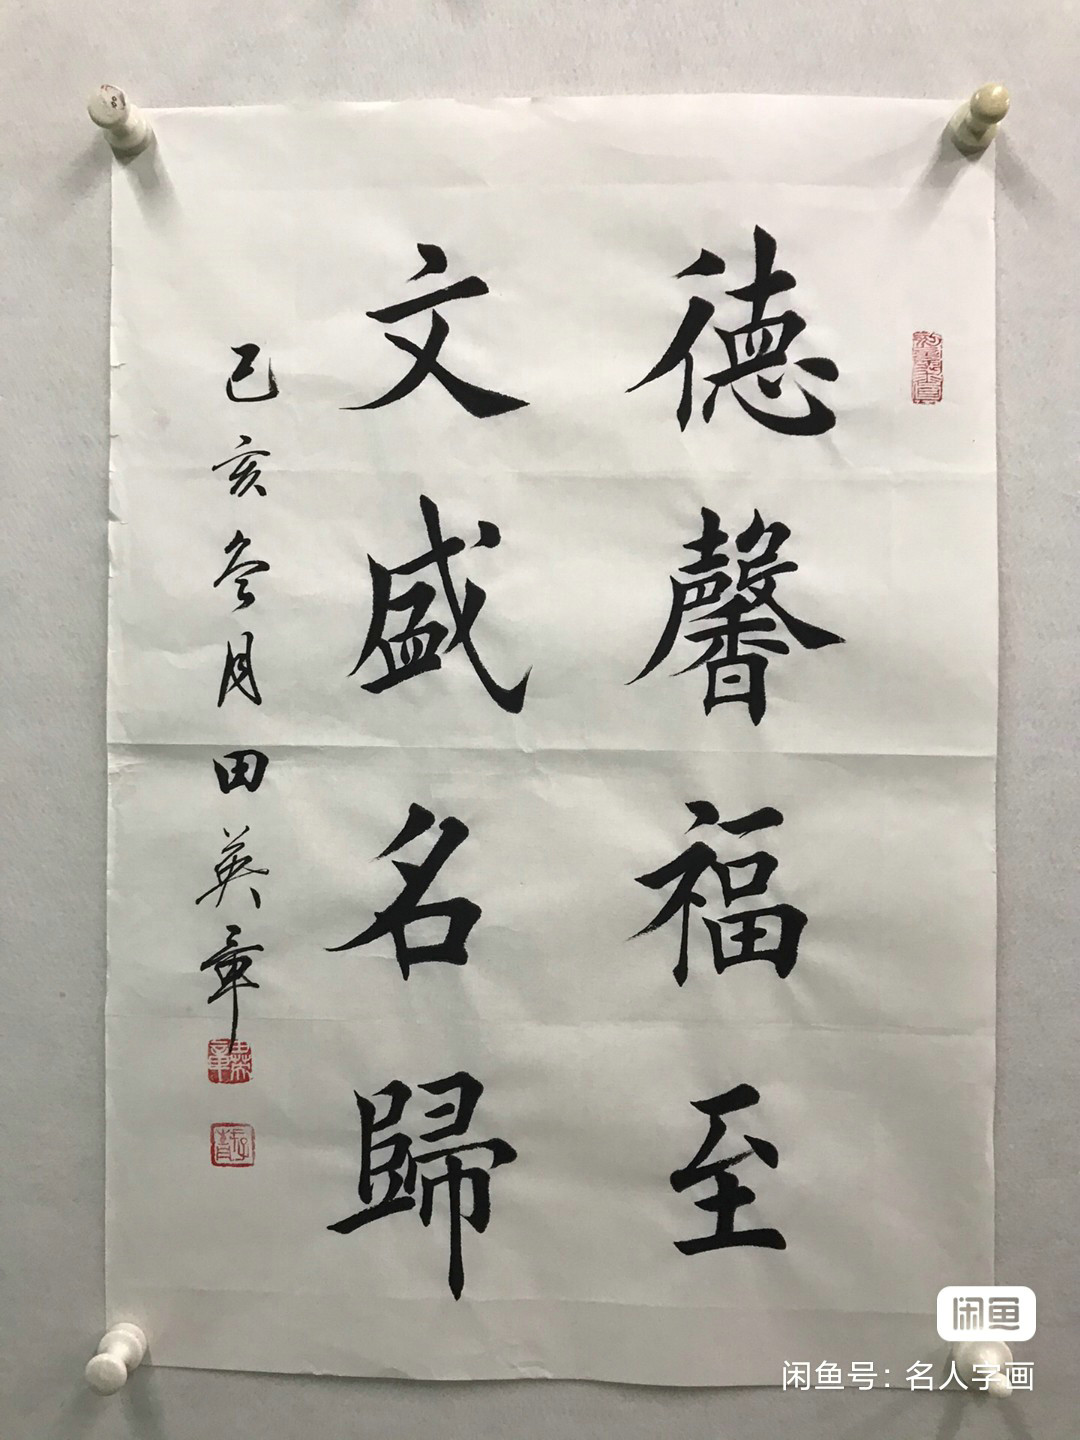 德馨福至
文盛名歸
己亥冬月田英章
闲鱼
闲鱼号：名人字画